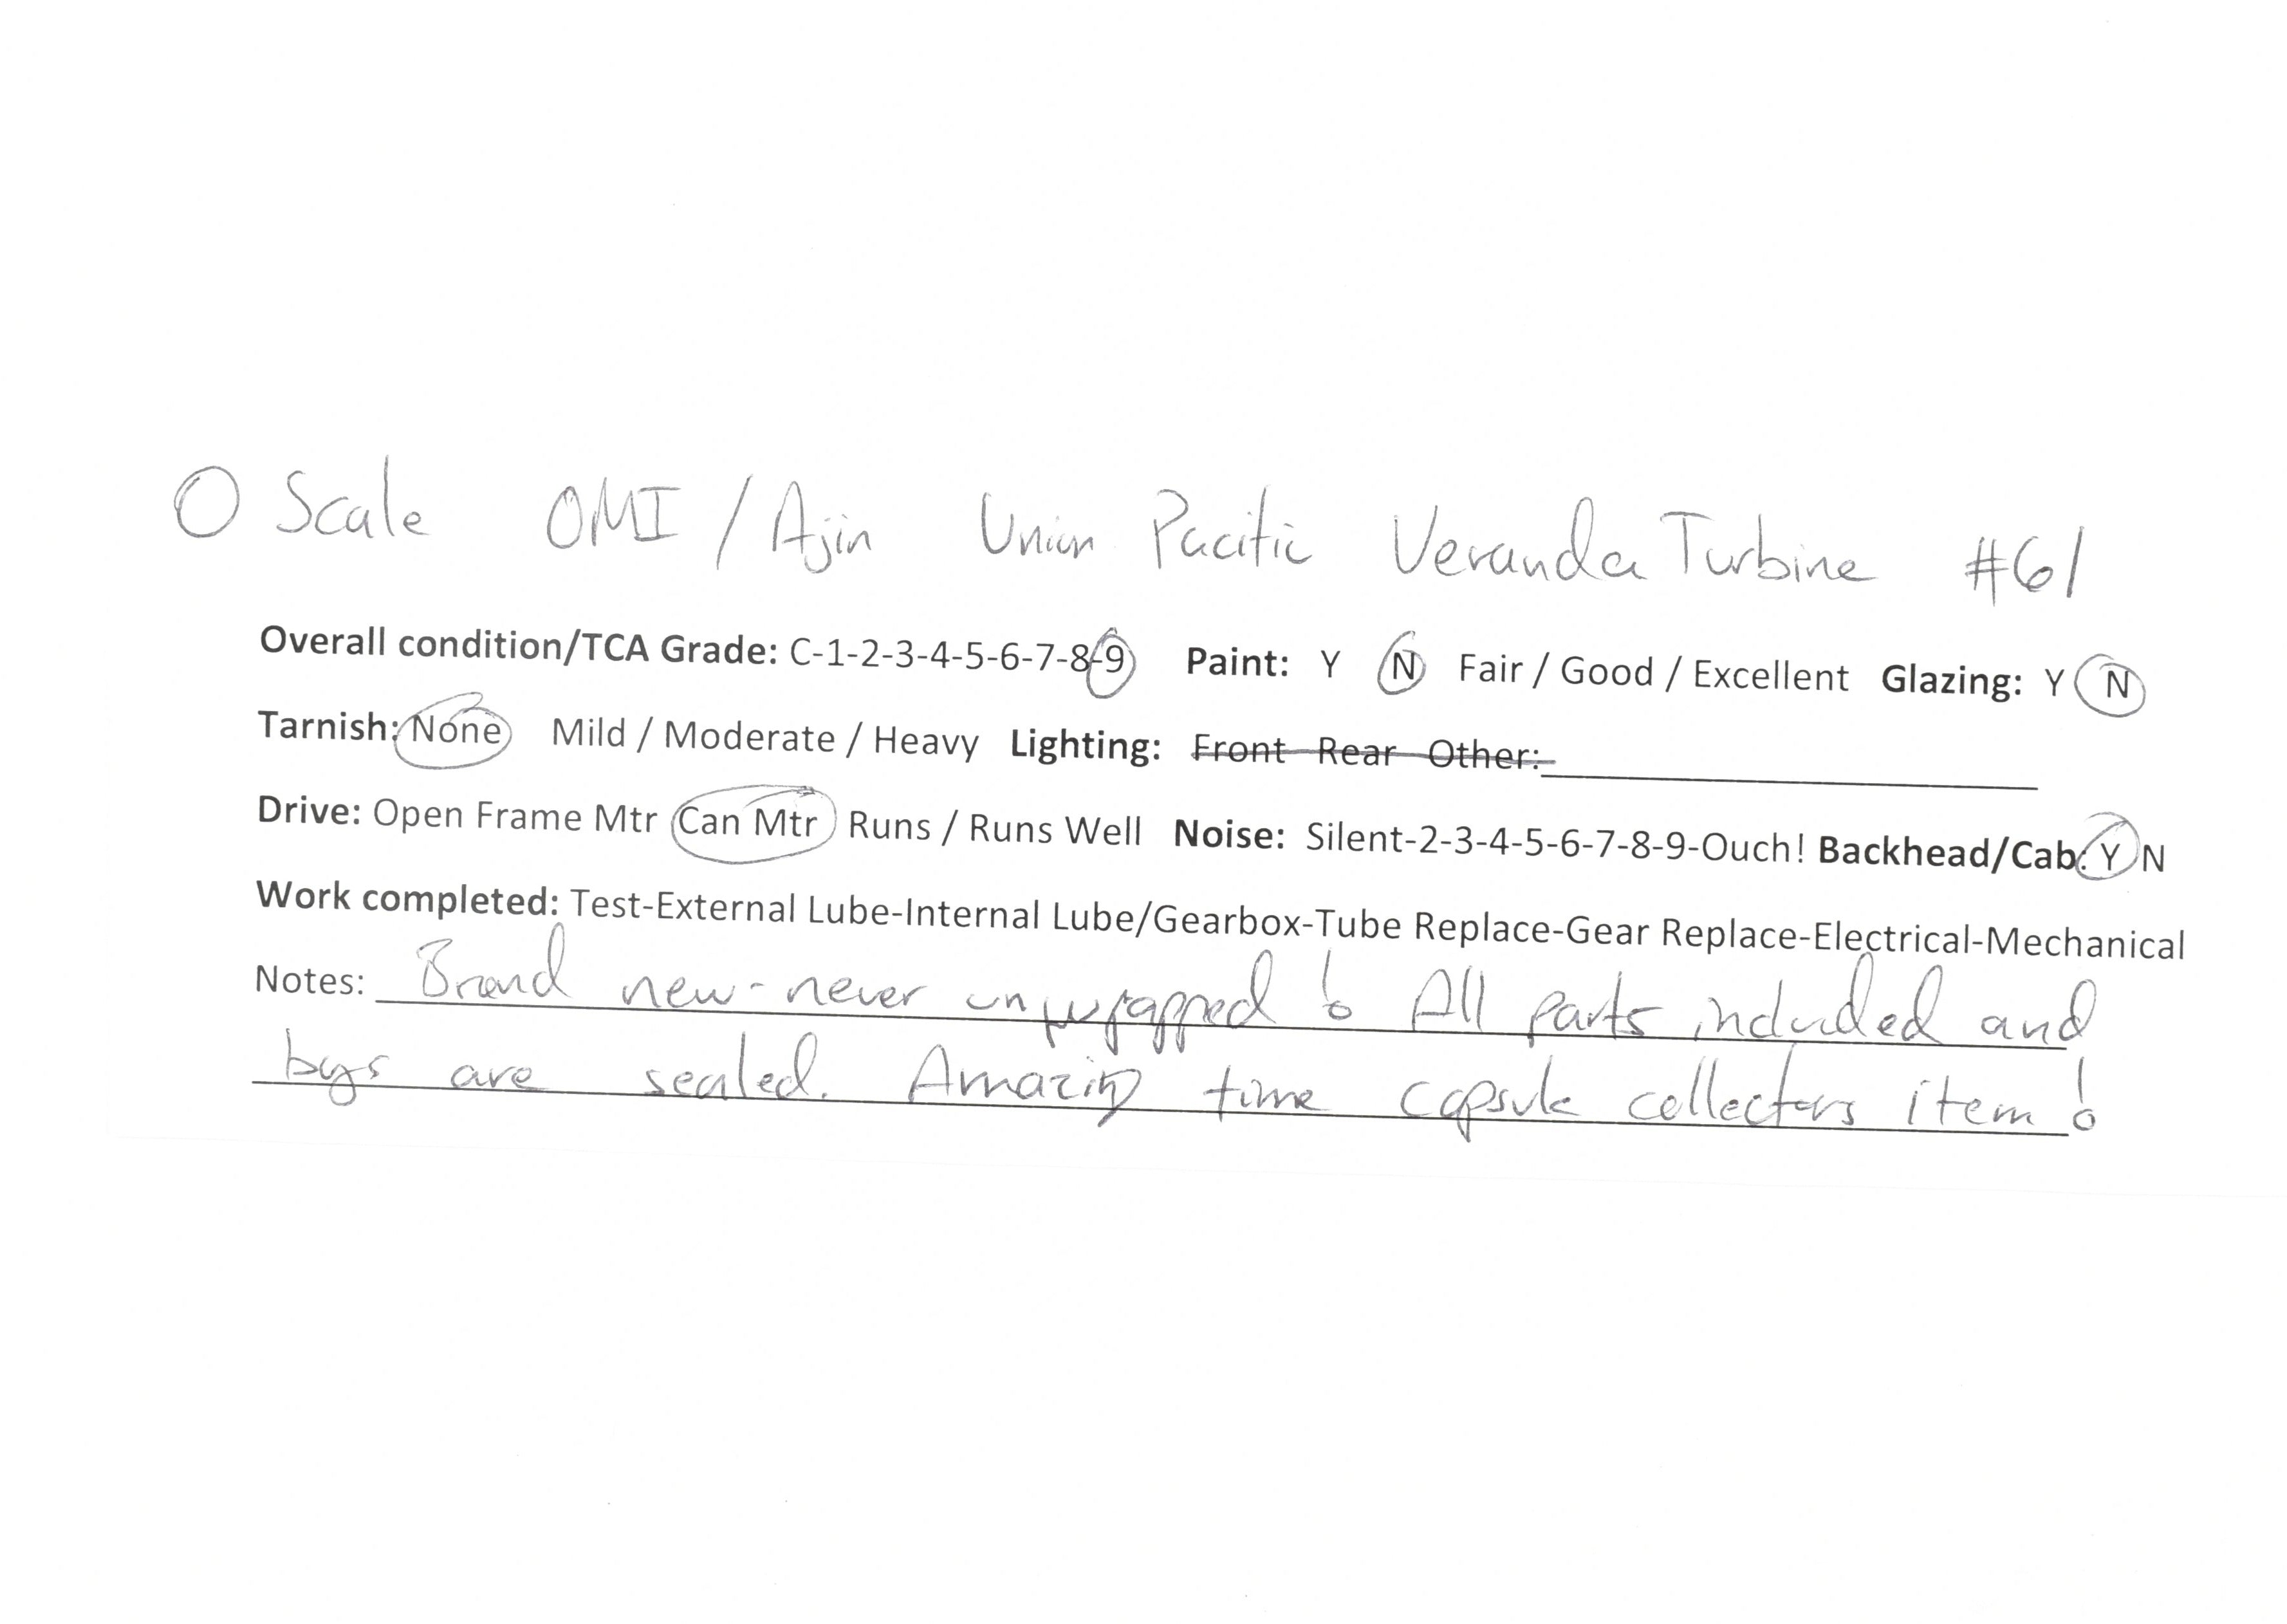 O Scale OMI / Ajin Union Pacific Veranda Turbine #61
Overall condition/TCA Grade: C-1-2-3-4-5-6-7-8-9 Paint: Y N Fair / Good / Excellent Glazing: Y N
Tarnish: None Mild / Moderate / Heavy Lighting: Front Rear Other:
Drive: Open Frame Mtr Can Mtr Runs / Runs Well Noise: Silent-2-3-4-5-6-7-8-9-Ouch! Backhead/Cab: Y N
Work completed: Test-External Lube-Internal Lube/Gearbox-Tube Replace-Gear Replace-Electrical-Mechanical
Notes: Brand new - never unwrapped! All parts included and
bags are sealed. Amazing time capsule collectors item!